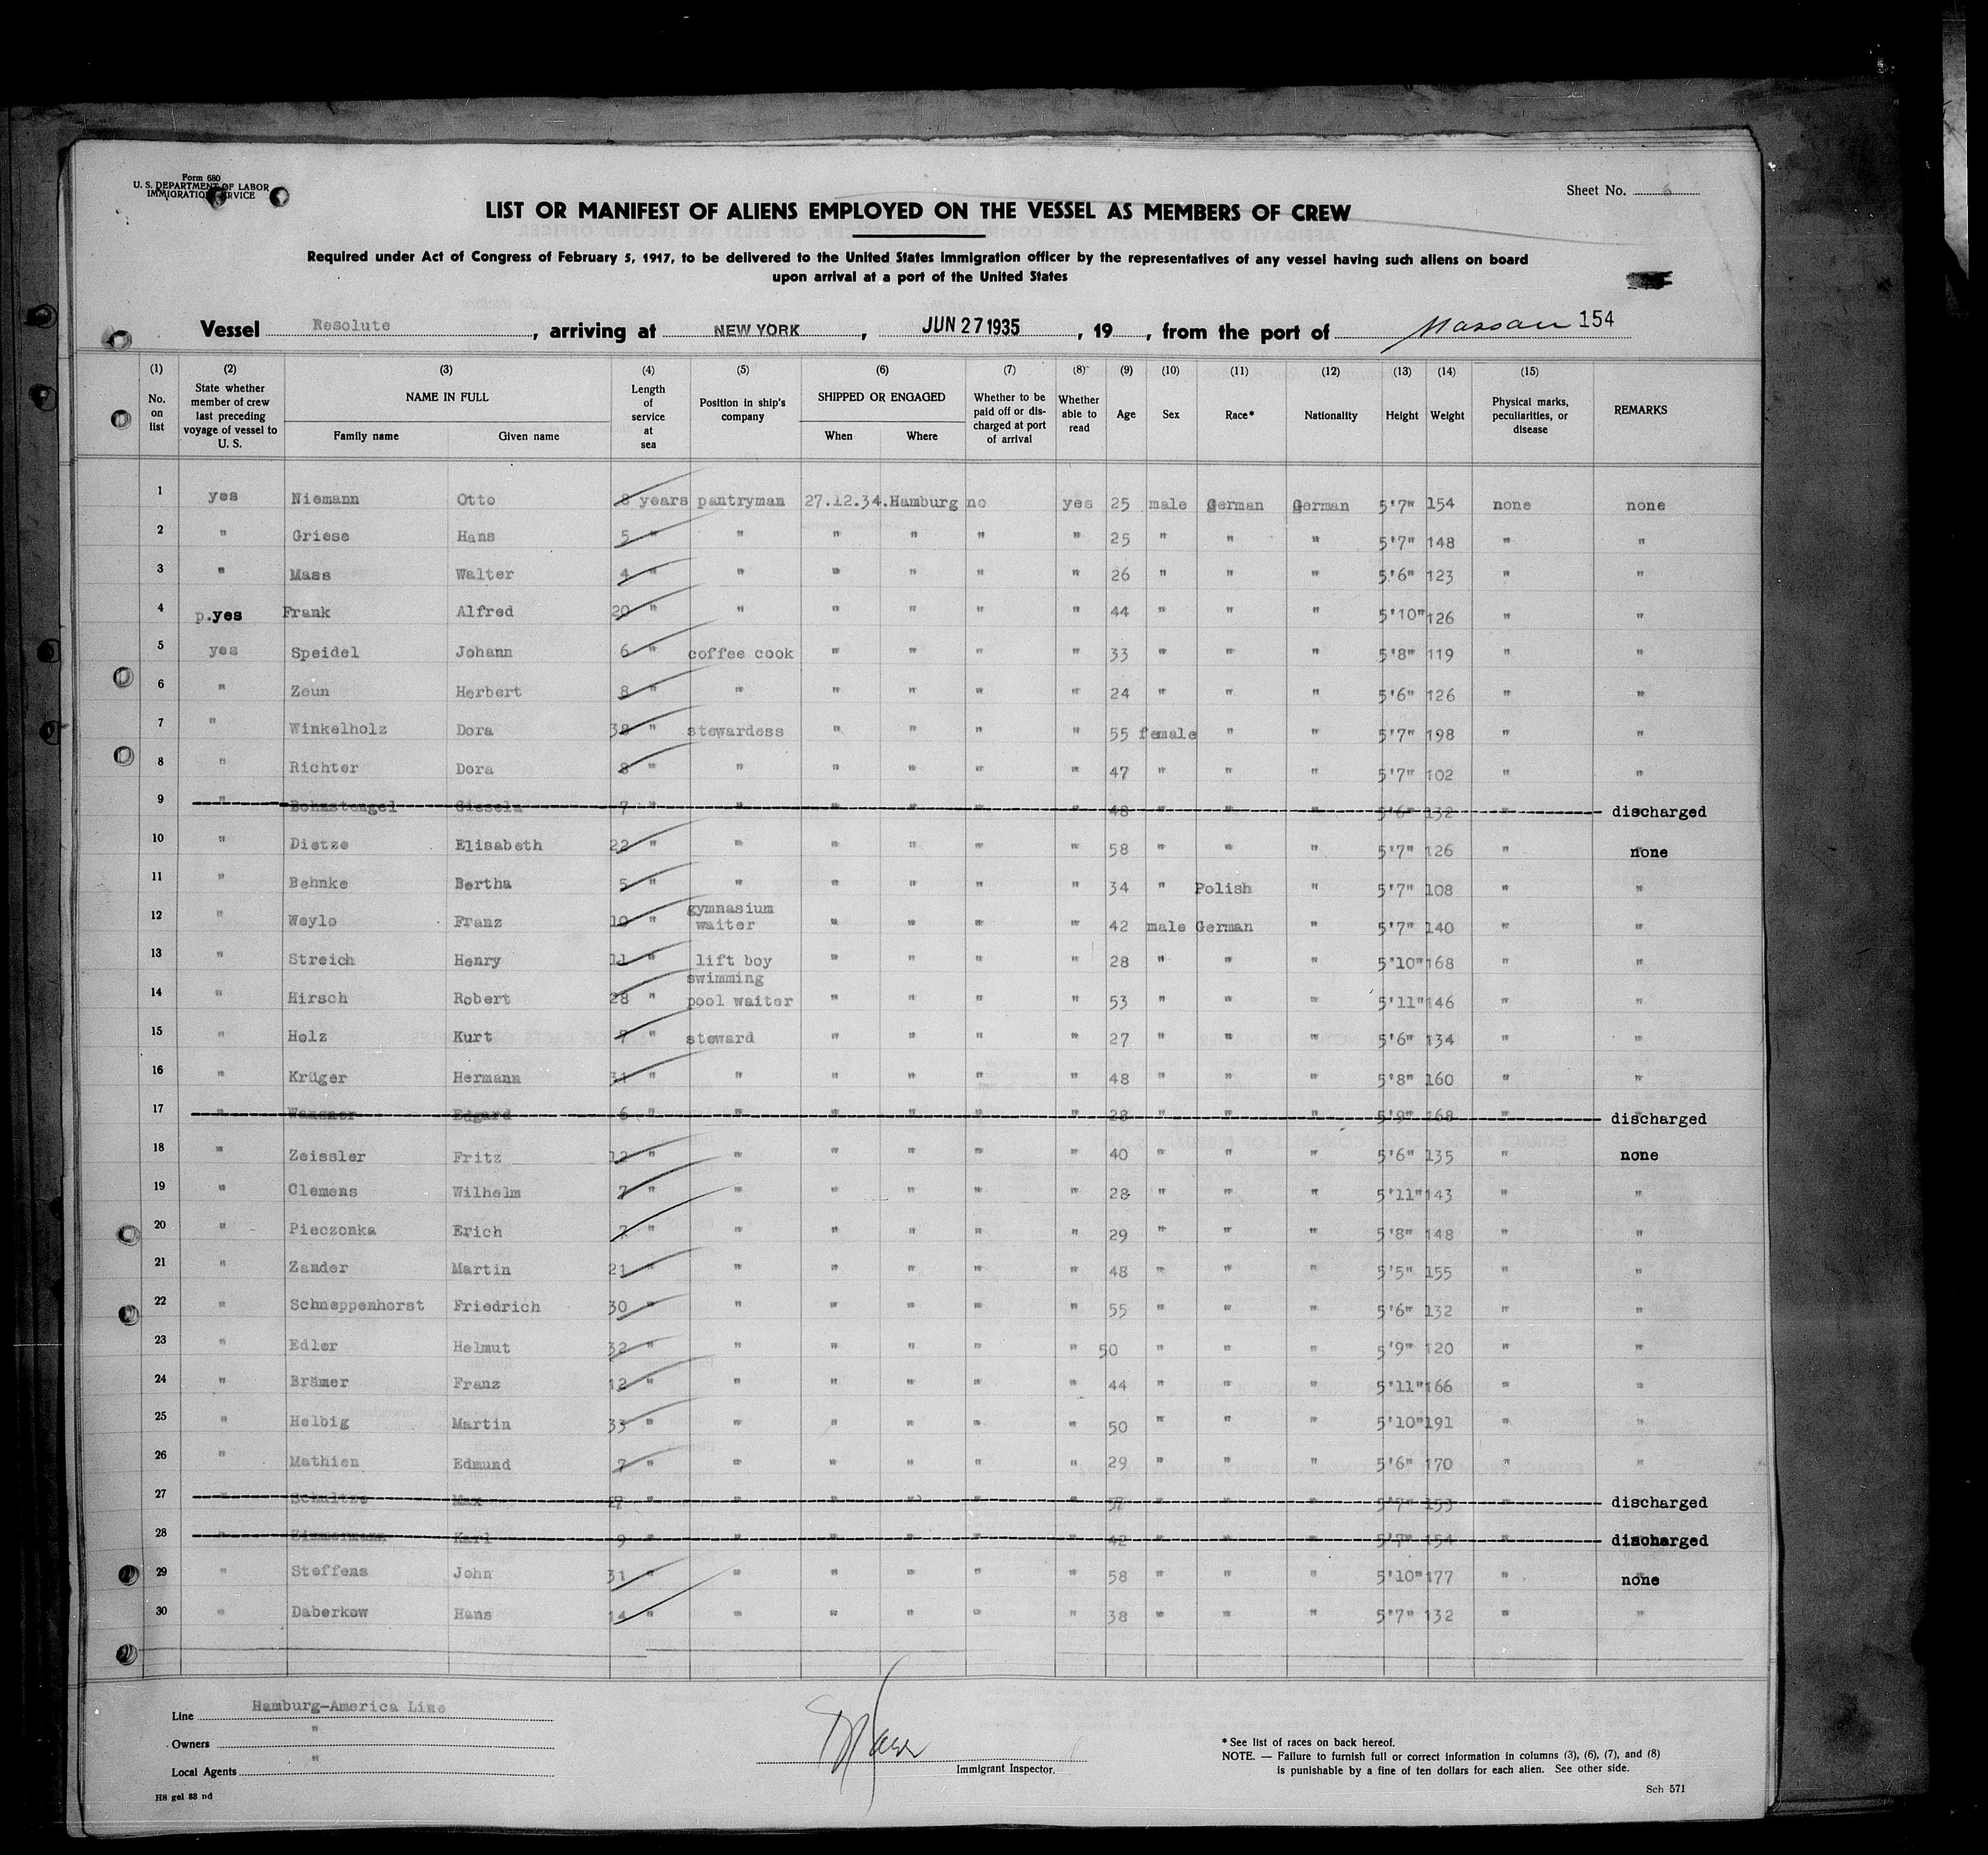 Form 680
U. S. DEPARTMENT OF LABOR
IMMIGRATION SERVICE
Sheet No. 6
LIST OR MANIFEST OF ALIENS EMPLOYED ON THE VESSEL AS MEMBERS OF CREW
Required under Act of Congress of February 5, 1917, to be delivered to the United States immigration officer by the representatives of any vessel having such aliens on board
upon arrival at a port of the United States
Vessel Resolute, arriving at NEW YORK, JUN 27 1935, 19, from the port of Nassau 154
(1) (2) (3) (4) (5) (6) (7) (8) (9) (10) (11) (12) (13) (14) (15)
No. on list State whether member of crew last preceding voyage of vessel to U. S. NAME IN FULL Family name Given name Length of service at sea Position in ship's company SHIPPED OR ENGAGED When Where Whether to be paid off or discharged at port of arrival Whether able to read Age Sex Race* Nationality Height Weight Physical marks, peculiarities, or disease REMARKS
1 yes Niemann Otto 8 years pantryman 27.12.34. Hamburg no yes 25 male German German 5'7" 154 none none
2 " Griese Hans 5 " " " " " " 25 " " " 5'7" 148 " "
3 " Mass Walter 4 " " " " " " 26 " " " 5'6" 123 " "
4 p.yes Frank Alfred 20 " " " " " " 44 " " " 5'10" 126 " "
5 yes Speidel Johann 6 " coffee cook " " " " 33 " " " 5'8" 119 " "
6 " Zeun Herbert 8 " " " " " " 24 " " " 5'6" 126 " "
7 " Winkelholz Dora 38 " stewardess " " " " 55 female " " 5'7" 198 " "
8 " Richter Dora 8 " " " " " " 47 " " " 5'7" 102 " "
9 " Bohmstengel Giesela 7 " " " " " " 48 " " " 5'6" 132 " discharged
10 " Dietze Elisabeth 22 " " " " " " 58 " " " 5'7" 126 " none
11 " Behnke Bertha 5 " " " " " " 34 " Polish " 5'7" 108 " "
12 " Weylo Franz 10 " gymnasium waiter " " " " 42 male German " 5'7" 140 " "
13 " Streich Henry 11 " lift boy " " " " 28 " " " 5'10" 168 " "
14 " Hirsch Robert 28 " swimming pool waiter " " " " 53 " " " 5'11" 146 " "
15 " Holz Kurt 7 " steward " " " " 27 " " " 5'6" 134 " "
16 " Krüger Hermann 31 " " " " " " 48 " " " 5'8" 160 " "
17 " Edgard 6 " " " " " " 28 " " " 5'9" 168 " discharged
18 " Zeissler Fritz 12 " " " " " " 40 " " " 5'6" 135 " none
19 " Clemens Wilhelm 7 " " " " " " 28 " " " 5'11" 143 " "
20 " Pieczonka Erich 7 " " " " " " 29 " " " 5'8" 148 " "
21 " Zander Martin 21 " " " " " " 48 " " " 5'5" 155 " "
22 " Schneppenhorst Friedrich 30 " " " " " " 55 " " " 5'6" 132 " "
23 " Edler Helmut 32 " " " " " " 50 " " " 5'9" 120 " "
24 " Brämer Franz 12 " " " " " " 44 " " " 5'11" 166 " "
25 " Helbig Martin 33 " " " " " " 50 " " " 5'10" 191 " "
26 " Mathien Edmund 7 " " " " " " 29 " " " 5'6" 170 " "
27 " Schultze Max " " " " " " 57 " " " 5'7" 153 " discharged
28 " Zimmermann Karl 9 " " " " " " 42 " " " 5'7" 154 " discharged
29 " Steffens John 31 " " " " " " 58 " " " 5'10" 177 " none
30 " Daberkow Hans 14 " " " " " " 38 " " " 5'7" 132 " "
Line Hamburg-America Line
Owners "
Local Agents "
Immigrant Inspector.
* See list of races on back hereof.
NOTE. — Failure to furnish full or correct information in columns (3), (6), (7), and (8)
is punishable by a fine of ten dollars for each alien. See other side.
H8 gel 88 nd
Sch 571